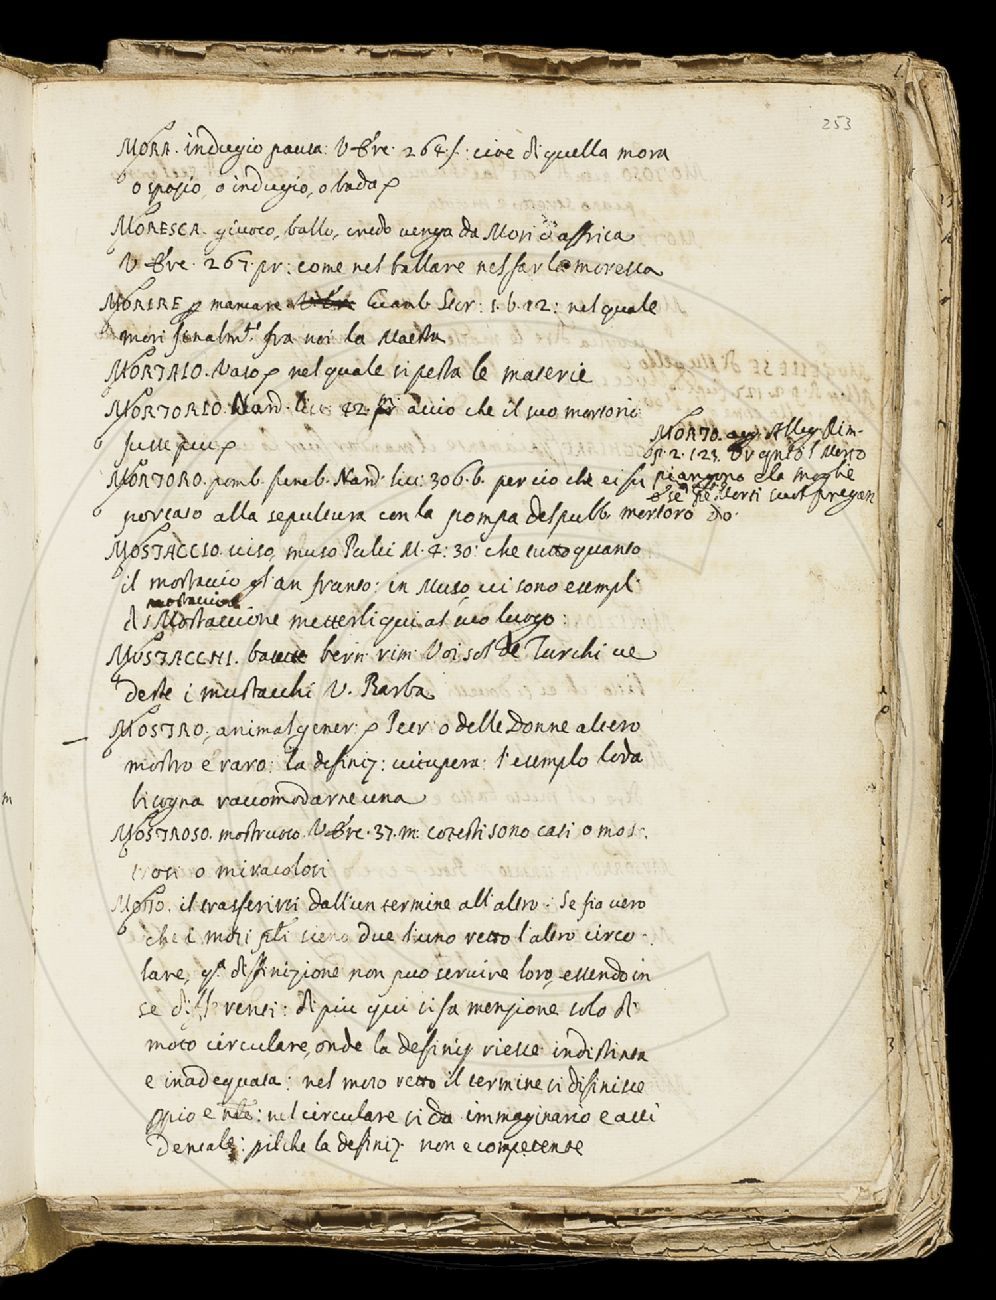 253
MORA. indugio pausa: V Bre. 264 f.: cioe di quella mora
o spazio, o indugio, o bada p
MORESCA. giuoco, ballo, credo venga da Mori d'affrica
V Bre. 267. pr: come nel ballare nel far la moresca
MORIRE p mancare Giamb. Secr: 1. b. 12: nel quale
mori finalmte. fra noi la Maestra
MORTAIO. Vaso p nel quale si pesta le materie
MORTORIO. Nard. liv: 42. accio che il suo mortorio
fusse piu p
MORTORO. pomb. funeb. Nard. liv: 306. b. per cio che ei fu
portato alla sepultura con la pompa del pubb. mortoro
MORTO. Alleg. Rim.
p. 2. 123. Morto
piangono e la moglie
Morti pregan
Dio.
MOSTACCIO. viso, muso Pulci M. 4: 30: che tutto quanto
il mostaccio gl'an franto: in Muso, vi sono esempli
mostaccione
di Mostaccione metterli qui al suo luogo:
MUSTACCHI. basette bern. rim. Voi sol de Turchi ve
deste i mustacchi V. Barba
MOSTRO, animal gener: p Petr: o delle Donne altero
mostro e raro: la definiz: vitupera: l'esemplo loda
bisogna raccomodarne una
MOSTROSO. mostruoso. V Bre. 37. m: cotesti sono casi o mos:
trosi o miracolosi
MOTO. il trasferirsi dall'un termine all'altro: Se fia vero
che i moti sieno due l'uno retto l'altro circo:
lare, qta. diffinizione non puo servire loro, essendo in
se differenti: di piu qui si fa menzione solo di
moto circulare, onde la definiz riesce indistinta
e inadeguata: nel moto retto il termine si difinisce
ppio e nte: nel circulare si da immaginario e acci
dentale: pilche la definiz. non e competente